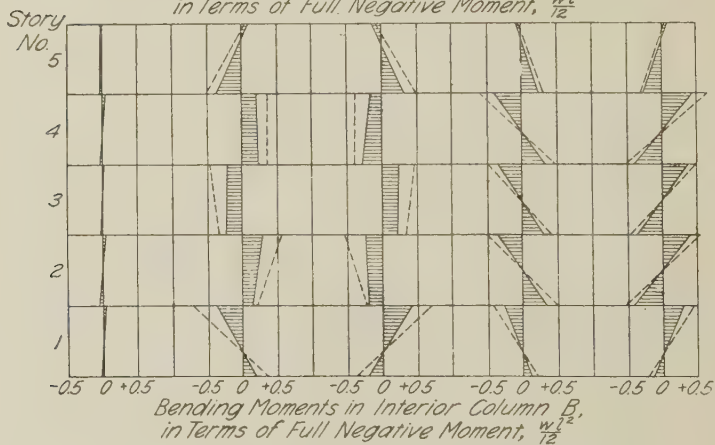 in Terms of Full Negative Moment, wl²/12
Story
No.
5
4
3
2
1
-0.5 0 +0.5 -0.5 0 +0.5 -0.5 0 +0.5 -0.5 0 +0.5 -0.5 0 +0.5
Bending Moments in Interior Column B,
in Terms of Full Negative Moment, wl²/12